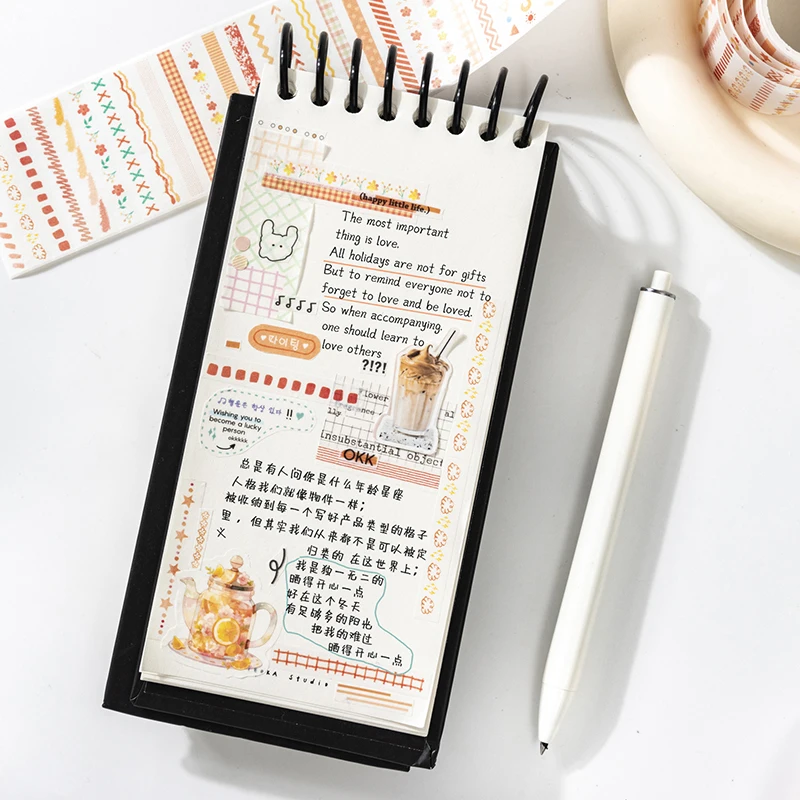 (happy little life.)
The most important
thing is love.
All holidays are not for gifts
But to remind everyone not to
forget to love and be loved.
So when accompanying.
one should learn to
love others
?!?!
파이팅
flower
fragrance
al
lly
insubstantial object
OKK
행운은 항상 있다 !!
Wishing you to
become a lucky
person
okkkkk
总是有人问你是什么年龄星座
人格我们就像物件一样；
被收纳到每一个写好产品类型的格子
里，但其实我们从来都不是可以被定
义
归类的 在这世界上；
我是独一无二的
晒得开心一点
好在这个冬天
有足够多的阳光
把我的难过
晒得开心一点
Studio